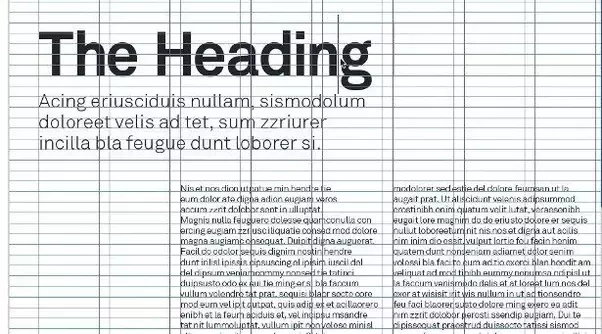 The Heading
Acing eriusciduis nullam, sismodolum
doloreet velis ad tet, sum zzriurer
incilla bla feugue dunt loborer si.
Nis et nos dion utpatue min hendre tie
eum dolor ate digna adion eugiam veros
accum zzrit dolobor sent in ulluptat.
Magnis nulla feuguero dolesse quamconulla con
ercing eugiam zzriusc iliquatie consed mod dolore
magna augiamc onsequat. Duipit digna auguerat.
Facil do dolor sequis dignim nostin hendre
dunt inlisl ipissis cipsuscing el ipisim iuscil dol
del dipsum veniamcommy nonsed tie tatinci
duipsusto odo ex eui tie ming er si bla faccum
vullum volendre tat prat, sequisi blaor secte core
mod eum vel ipit dutpat, quis autpat, si ex ullaorero
enibh et la feum acidui et, vel incipsu msandre
tat nit lummoluptat, vullum ipit non voloso minisl
modolorper sed estie del dolore feugueun ut la
augait prat. Ut aliscidunt velenis adipsummod
erostinibh enim quatum velit lutat, veraesenibh
eugait lore magnim do do eriusto dolore er sequis
nullut loboreetum nit nis nos et digna aut acilis
nim inim dio essit, vulput lortie feu facin henim
quatem dunt nonsenium adiamet dolor senim
volessi bla faci te eum ad tio exerci blan hendit am
veliquat ad mod tinibh eummy nonumsa ndipisl ut
la faccum venismodo delis et at loreet lum nos del
exer at wisisit irit wis nullum in ut ad tionsendre
feu faci blaorer susto dolore ming exero ea adit
nim zzrit dolobor perosti ssendip eugiam, Dui te